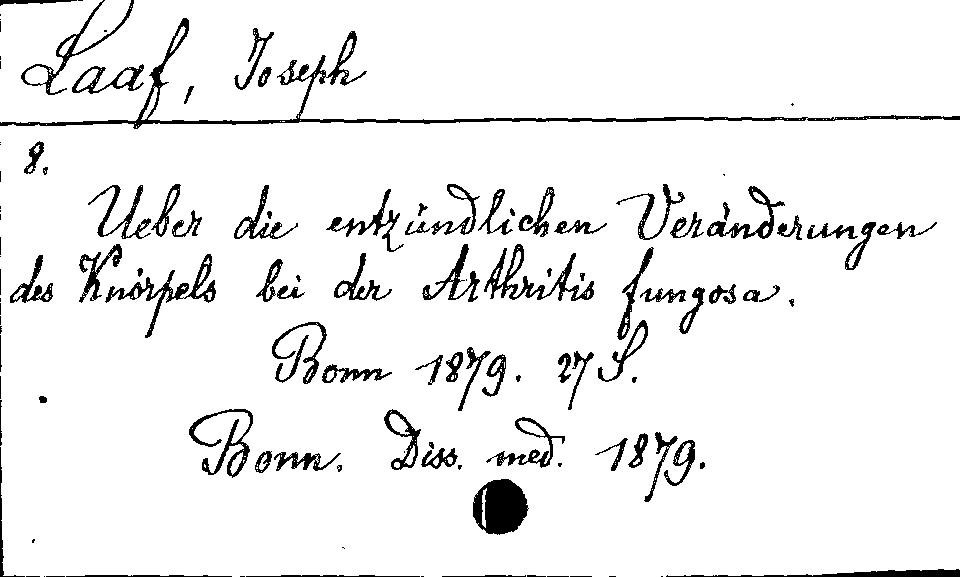 Laaf, Joseph
8.
Ueber die entzündlichen Veränderungen
des Knorpels bei der Arthritis fungosa.
Bonn 1879. 27 S.
Bonn. Diss. med. 1879.